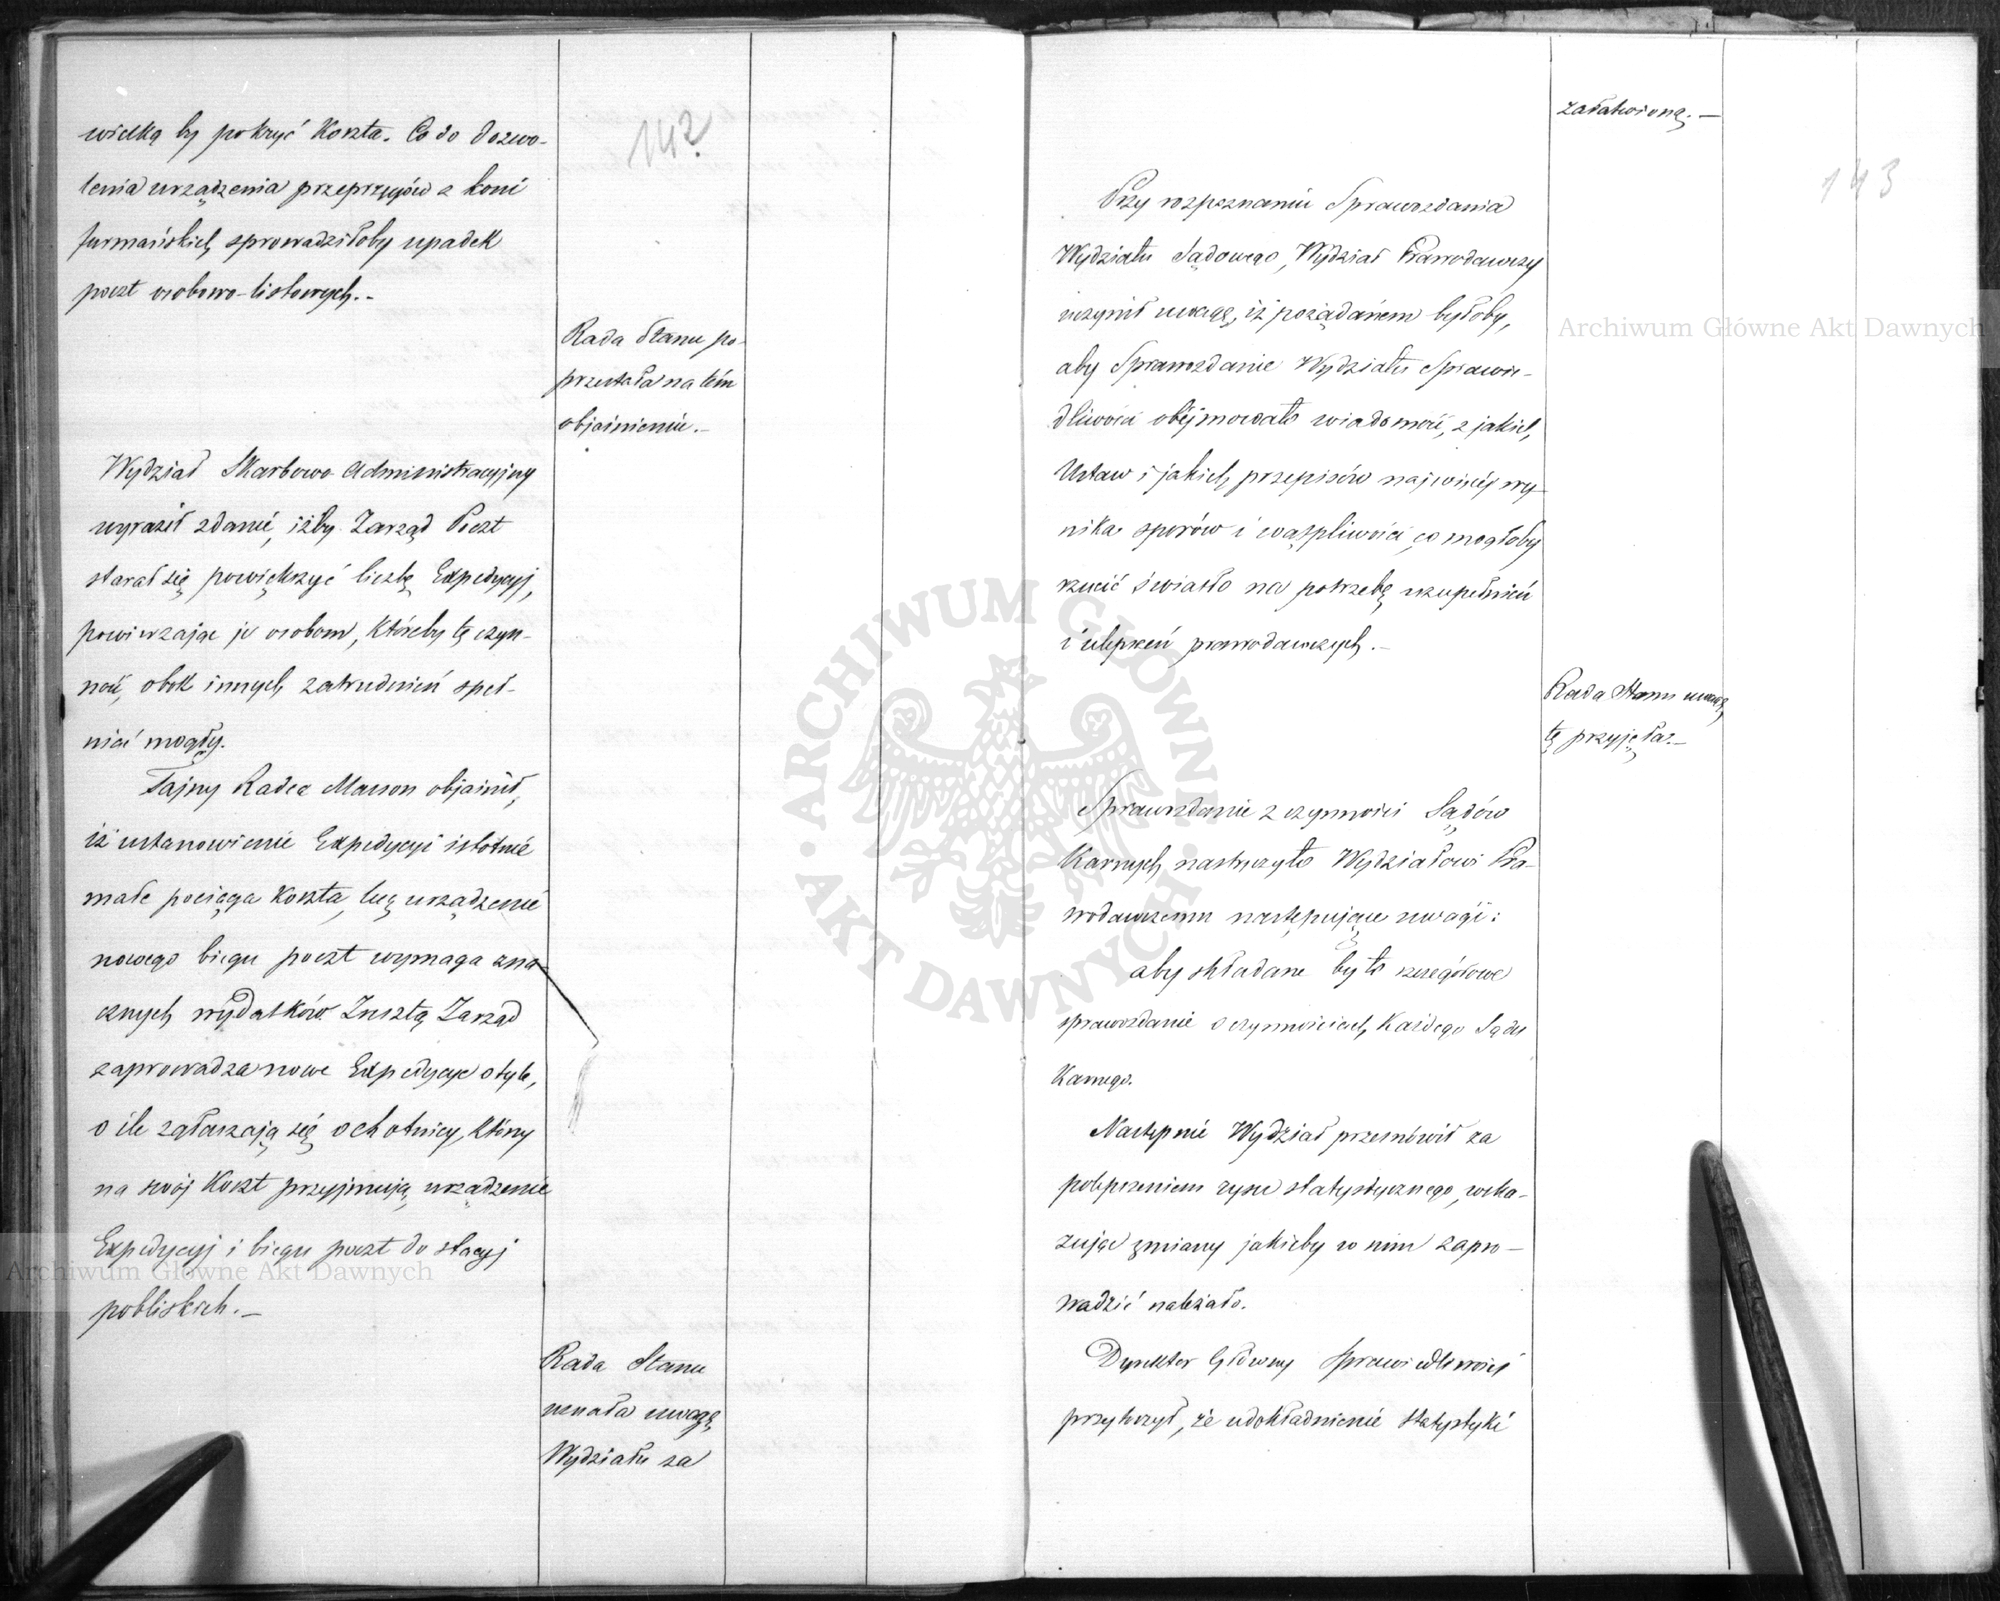 142
wielką by pokryć koszta. Co do dozwo-
lenia urządzenia przeprzęgów z koni
furmańskich, sprowadziłoby upadek
poczt osobowo-listowych.-
Rada Stanu po-
przestała na tém
objaśnieniu.-
Wydział Skarbowo Administracyjny
wyraził zdanie, iżby Zarząd Poczt
starał się powiększyć liczbę Expedycyj,
powierzając je osobom, któreby tę czyn-
ność, obok innych zatrudnień speł-
niać mogły.
Tajny Radca Masson objaśnił,
iż ustanowienie Expedycyi istotnie
małe pociąga koszta, lecz urządzenie
nowego biegu poczt wymaga zna-
cznych wydatków. Zresztą Zarząd
zaprowadza nowe Expedycye o tyle,
o ile zgłaszają się ochotnicy, którzy
na swój koszt przyjmują urządzenie
Expedycyj i biegu poczt do stacyj
pobliskich.-
Rada Stanu
uznała uwagę
Wydziału za
załatwioną.-
143
Przy rozpoznaniu Sprawozdania
Wydziału Sądowego, Wydział Prawodawczy
uczynił uwagę, iż pożądaném byłoby,
aby Sprawozdanie Wydziału Sprawie-
dliwości obejmowało wiadomość, z jakich
Ustaw i jakich przepisów najwięcéj wy-
nika sporów i wątpliwości, co mogłoby
rzucić światło na potrzebę uzupełnień
i ulepszeń prawodawczych.-
Rada Stanu uwagę
tę przyjęła.-
Sprawozdanie z czynności Sądów
Karnych, nastręczyło Wydziałowi Pra-
wodawczemu następujące uwagi:
aby składane było szczegółowe
sprawozdanie o czynnościach każdego Sądu
Karnego.
Następnie Wydział przemówił za
polepszeniem rysu statystycznego, wska-
zując zmiany jakieby w nim zapro-
wadzić należało.
Dyrektor Główny Sprawiedliwości
przytoczył, że udokładnienie statystyki
Archiwum Główne Akt Dawnych
Archiwum Główne Akt Dawnych
ARCHIWUM GŁÓWNE AKT DAWNYCH